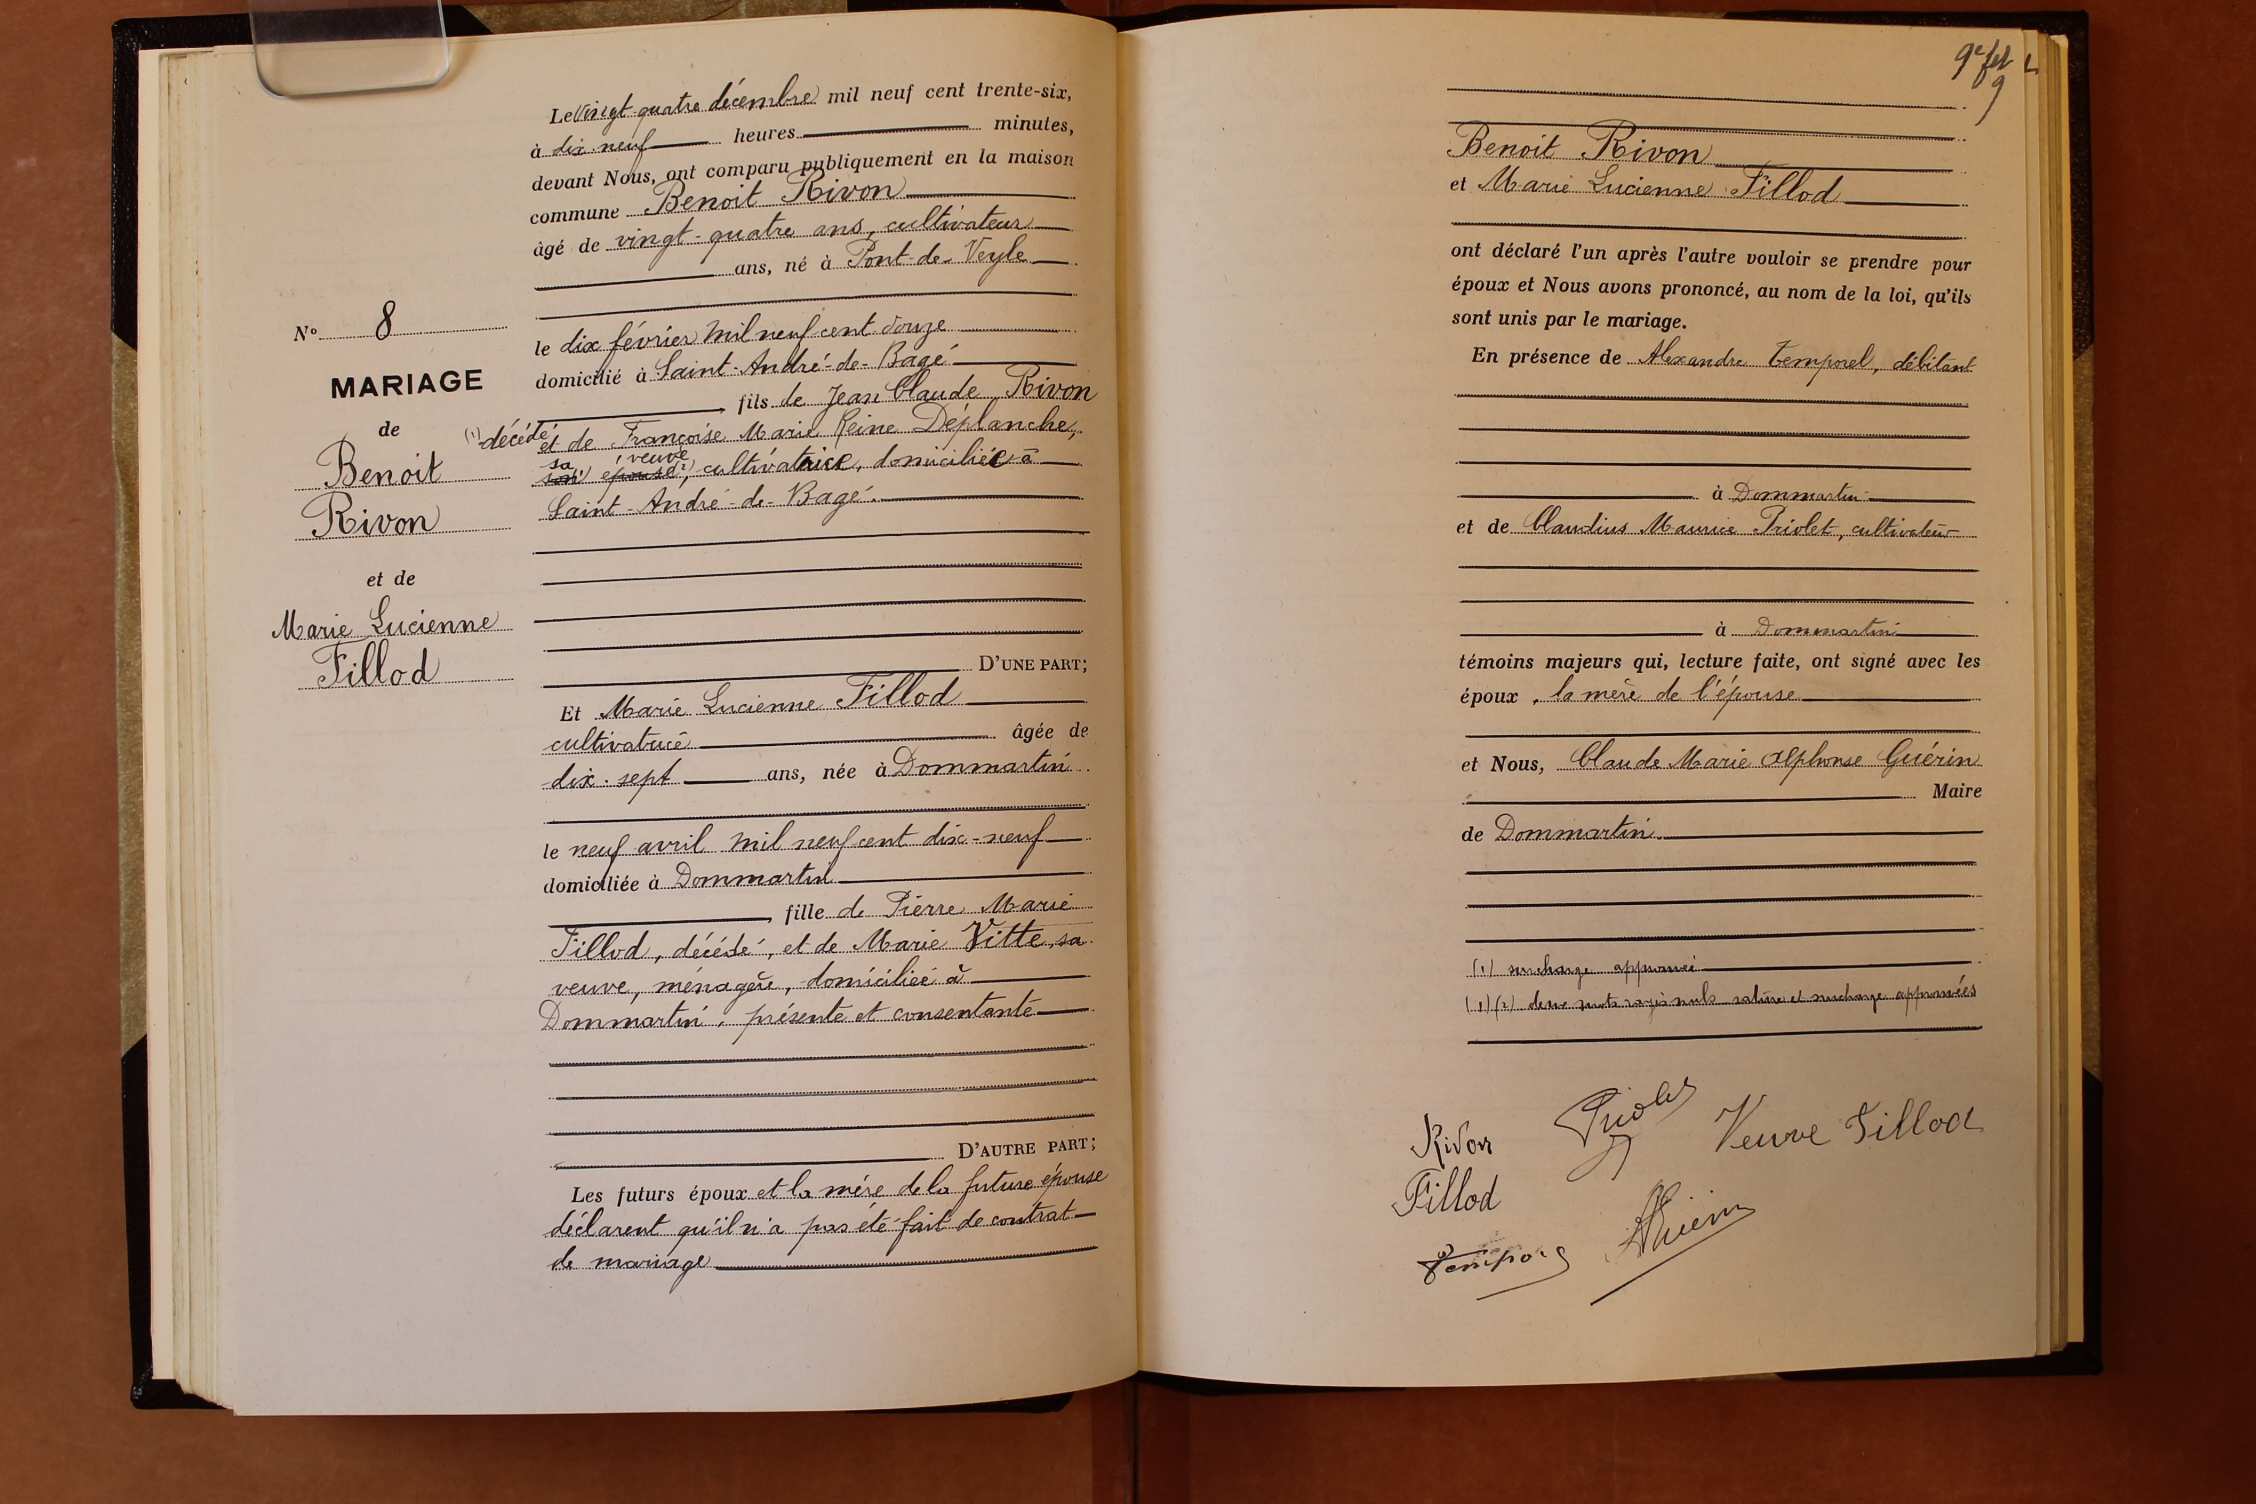 N° 8
MARIAGE
de
Benoit
Rivon
et de
Marie Lucienne
Fillod
Le vingt-quatre décembre mil neuf cent trente-six,
à dix-neuf heures minutes,
devant Nous, ont comparu publiquement en la maison
commune Benoit Rivon
âgé de vingt-quatre ans, cultivateur
ans, né à Pont-de-Veyle
le dix février mil neuf cent douze
domicilié à Saint-André-de-Bagé
, fils de Jean Claude Rivon
(1) décédé et de Françoise Marie Reine Déplanche,
sa veuve
son (1) épouse (2), cultivatrice, domiciliée à
Saint-André-de-Bagé.
D'UNE PART;
Et Marie Lucienne Fillod
cultivatrice âgée de
dix-sept ans, née à Dommartin
le neuf avril mil neuf cent dix-neuf
domiciliée à Dommartin
, fille de Pierre Marie
Fillod, décédé, et de Marie Vitte, sa
veuve, ménagère, domiciliée à
Dommartin, présente et consentante
D'AUTRE PART;
Les futurs époux et la mère de la future épouse
déclarent qu'il n'a pas été fait de contrat
de mariage
9
Benoit Rivon
et Marie Lucienne Fillod
ont déclaré l'un après l'autre vouloir se prendre pour
époux et Nous avons prononcé, au nom de la loi, qu'ils
sont unis par le mariage.
En présence de Alexandre Temporel, débitant
à Dommartin
et de Claudius Maurice Priolet, cultivateur
à Dommartin
témoins majeurs qui, lecture faite, ont signé avec les
époux, la mère de l'épouse
et Nous, Claude Marie Alphonse Guérin
Maire
de Dommartin.
(1) surcharge approuvée
(1) (2) deux mots rayés nuls rature et surcharge approuvées
Rivon
Priolet
Veuve Fillod
Fillod
AGuérin